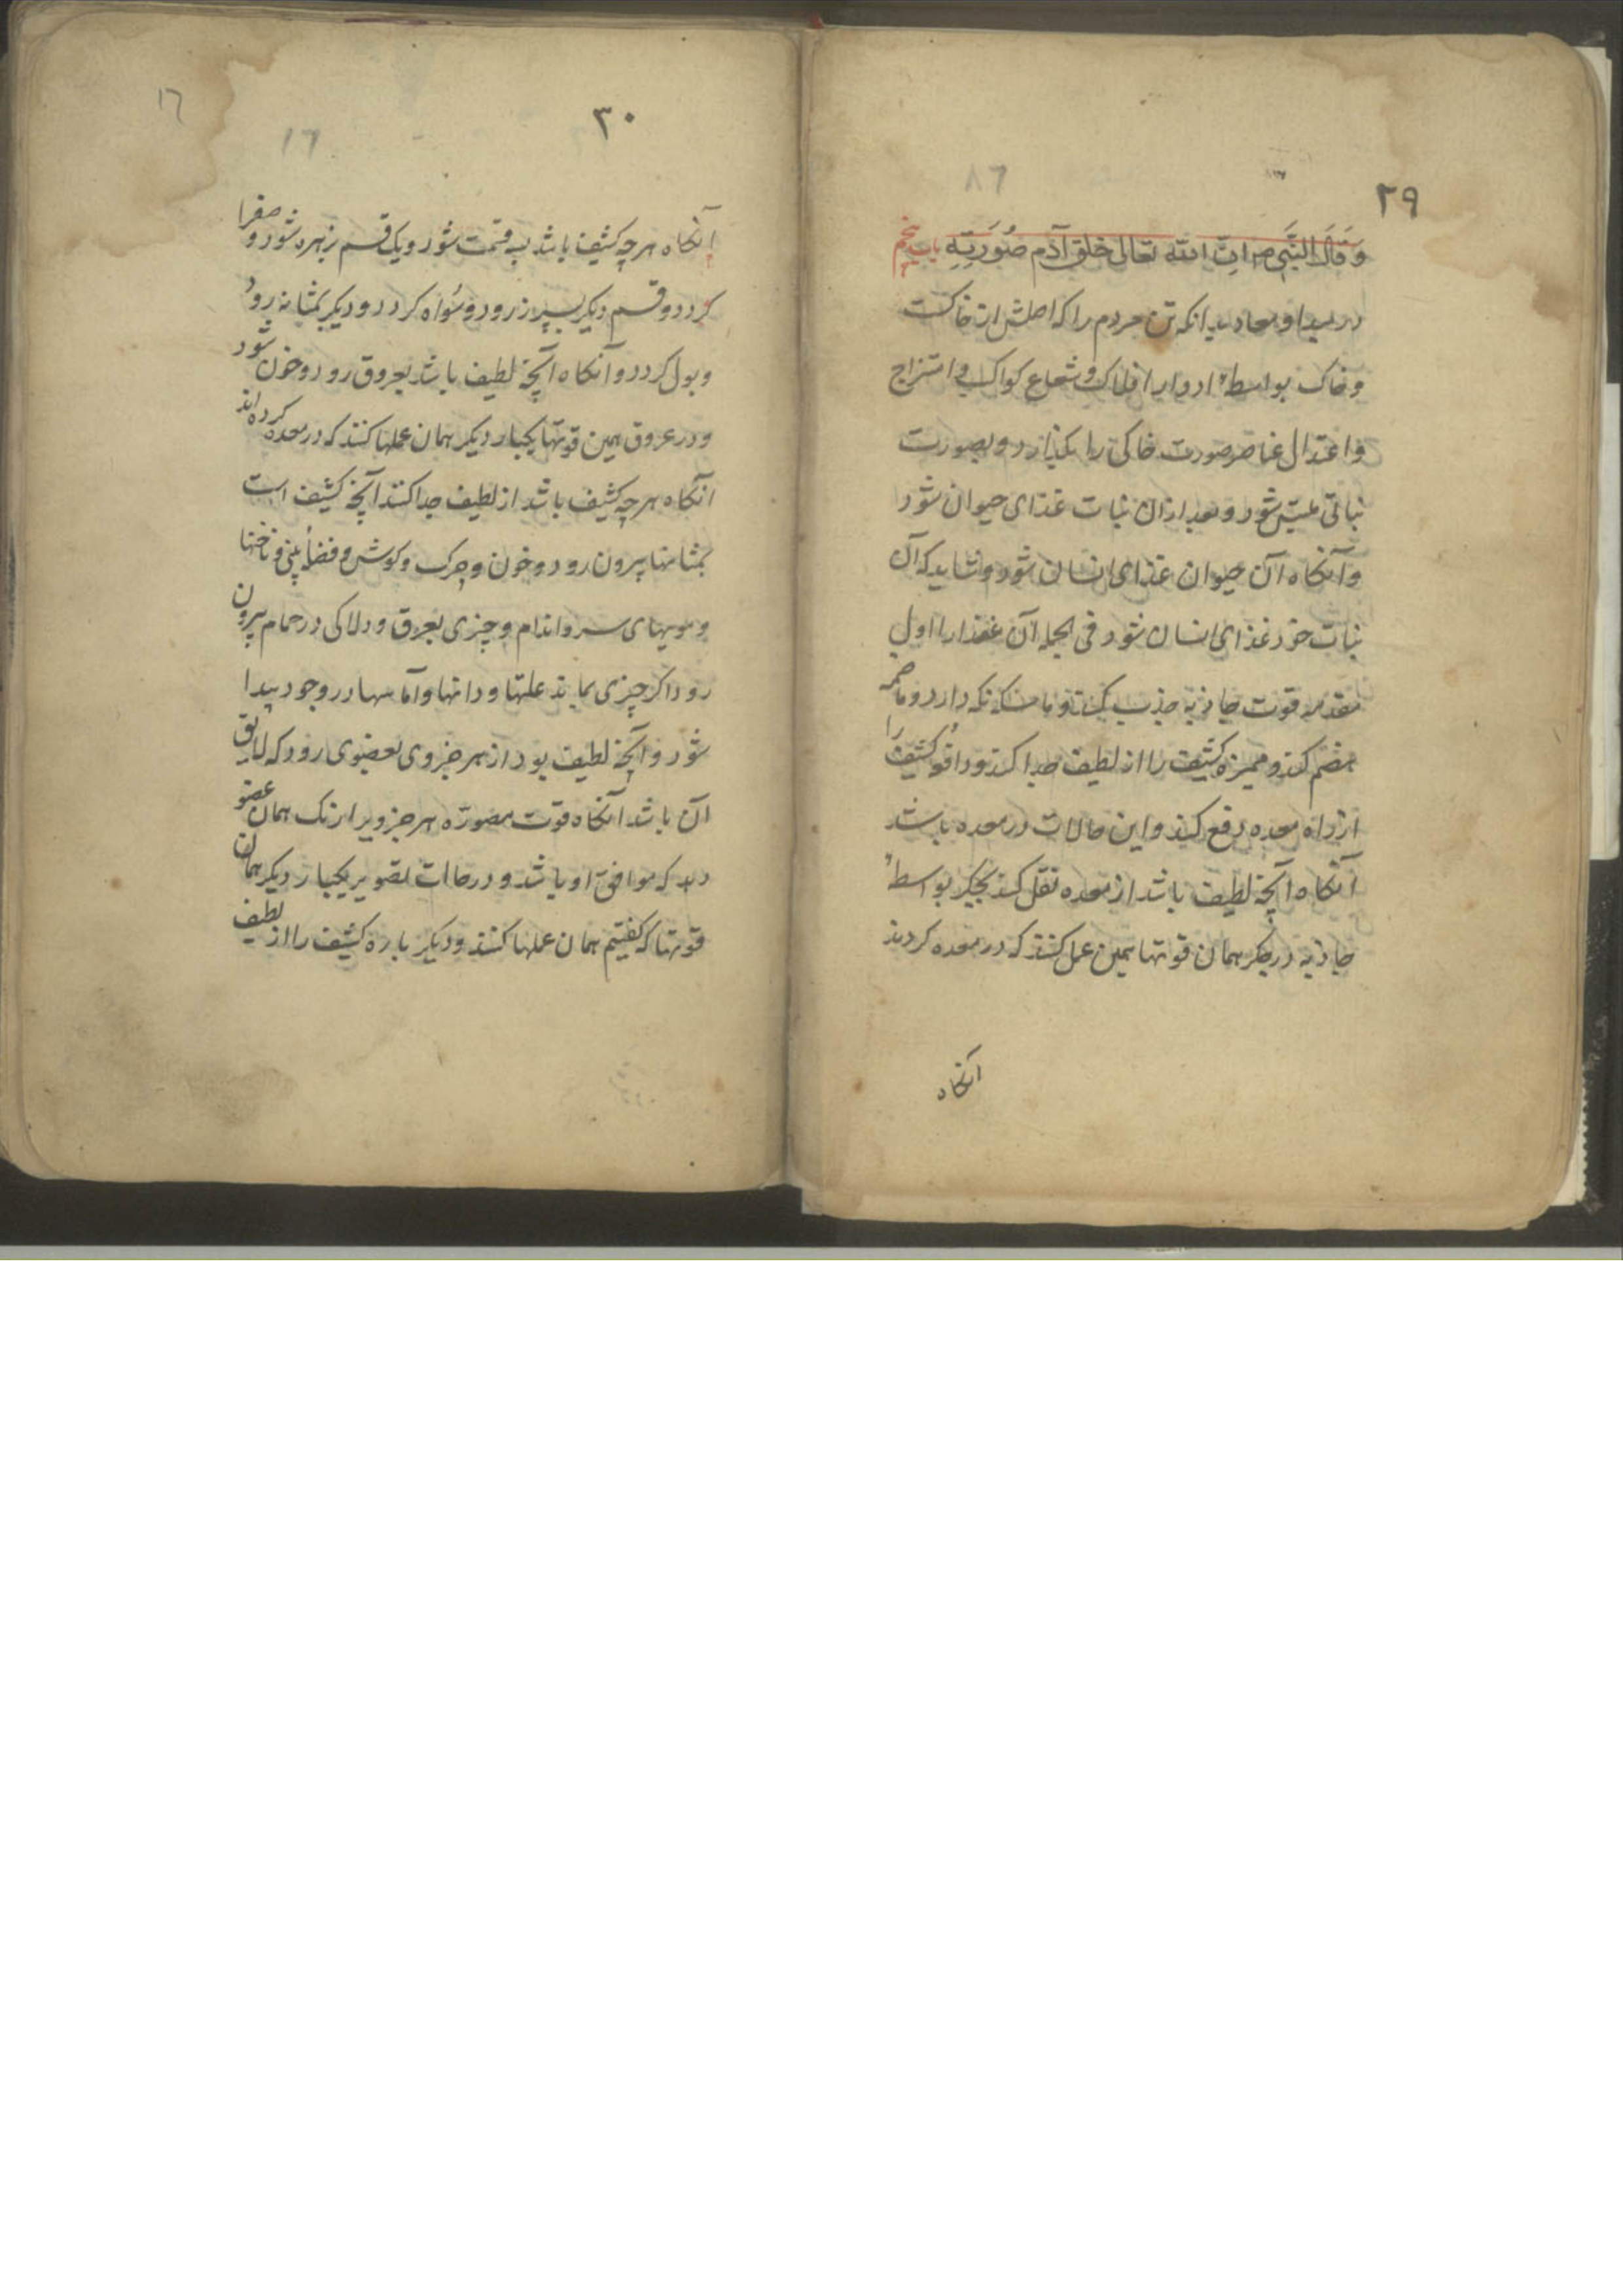 ٢٩
وَقَالَ النَّبِی ص اِنَّ الله تعالی خلق آدم صُورَتِهِ باب پنجم
در مبدا و معاد بدانکه تن مردم را که اصلش از خاکست
و خاک بواسطهٔ ادوار افلاک و شعاع کواکب و امتزاج
و اعتدال عناصر صورت خاکی را بگذارد و بصورت
نباتی ملبس شود و بعد از ان نبات غذای حیوان شود
و آنکاه آن حیوان غذای انسان شود و شاید که آن
نبات خود غذای انسان شود فی الجمله آن غذا را اول
بمقدمه قوت جاذبه جذب کند و ماسکه نکه دارد و هاضمه
هضم کند و ممیزه کثیف را از لطیف جدا کند و دافعه کثیف را
از راه معده دفع کند و این حالات در معده باشد
آنکاه آنچه لطیف باشد از معده نقل کند بجکر بواسطهٔ
جاذبه در جکر همان قوتها همین عمل کنند که در معده کردند
آنکاه
٣٠
آنکاه هرچه کثیف باشد بسه قسمت شود و یک قسم بزهره شود و صفرا
کردد و قسم دیکر بسپرز رود و سُواه کردد و دیکر بمثانه رود
و بول کردد و آنکاه آنچه لطیف باشد بعروق رود و خون شود
و در عروق همین قوتها یکبار دیکر همان عملها کنند که در معده کرده اند
آنکاه هرچه کثیف باشد از لطیف جدا کنند آنچه کثیف است
بمشامها بیرون رود و خون و چرک و کوش و فضلهٔ بینی و ناخنها
و مویهای سر و اندام و چیزی بعرق و دلاکی در حمام بیرون
رود اکر چیزی بماند علتها و دانها و آماسها در وجود پیدا
شود و آنچه لطیف بود از هر جزوی بعضوی رود که لایق
آن باشد آنکاه قوت مصوره هر جزویرا رنک همان عضو
دهد که موافق او باشد و در حالت تصویر یکبار دیکر همان
قوتها که کفتیم همان عملها کنند و دیکر باره کثیف را از لطیف